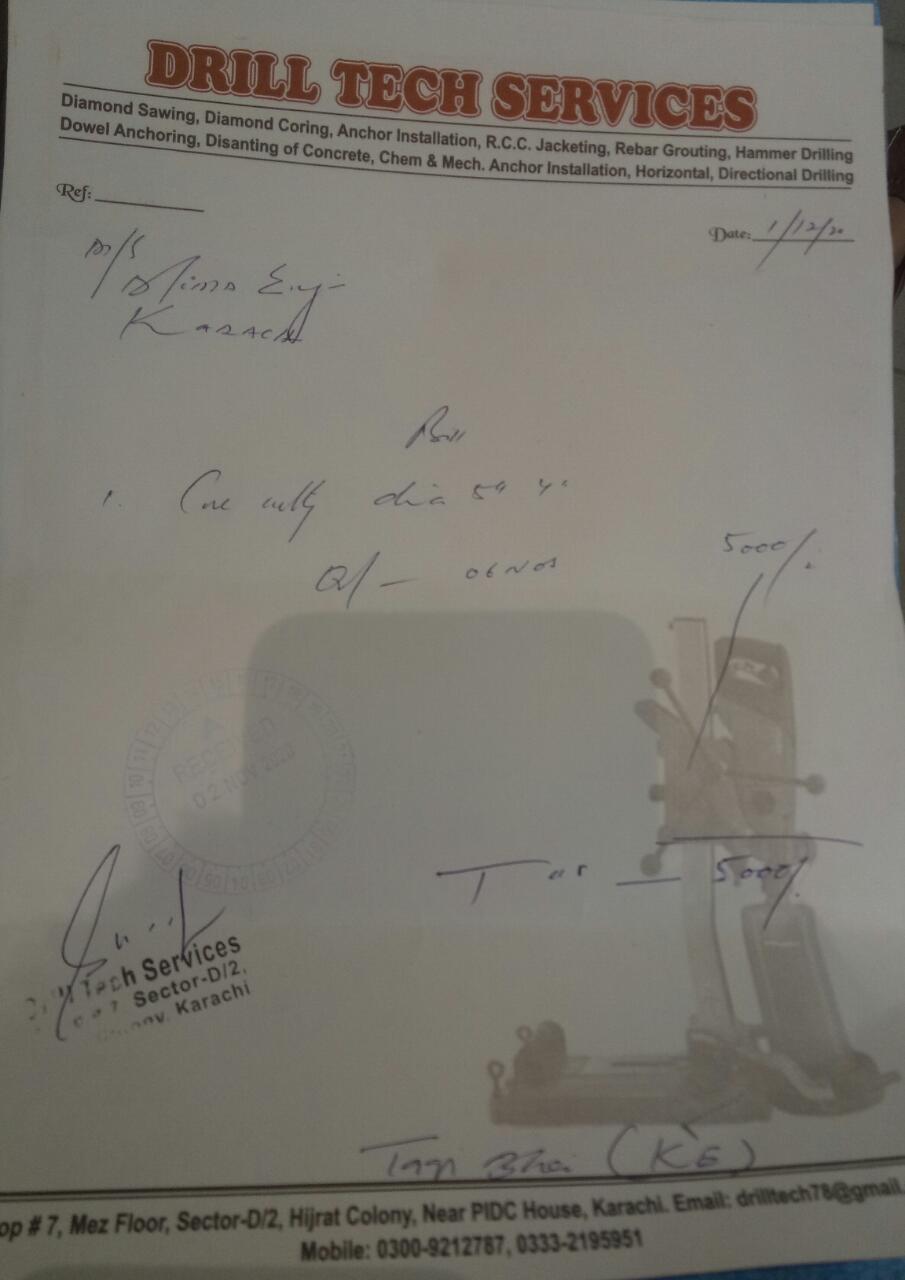 DRILL TECH SERVICES
Diamond Sawing, Diamond Coring, Anchor Installation, R.C.C. Jacketing, Rebar Grouting, Hammer Drilling
Dowel Anchoring, Disanting of Concrete, Chem & Mech. Anchor Installation, Horizontal, Directional Drilling
Ref:
Date: 1/12/20
M/S
Karachi
Bill
1. Core dia 5" 4"
06 Nos 5000/.
RECEIVED
02 NOV 2020
5000/.
Tech Services
Sector-D/2,
Karachi
Bhai (KE)
op # 7, Mez Floor, Sector-D/2, Hijrat Colony, Near PIDC House, Karachi. Email: drilltech78@gmail.
Mobile: 0300-9212787, 0333-2195951